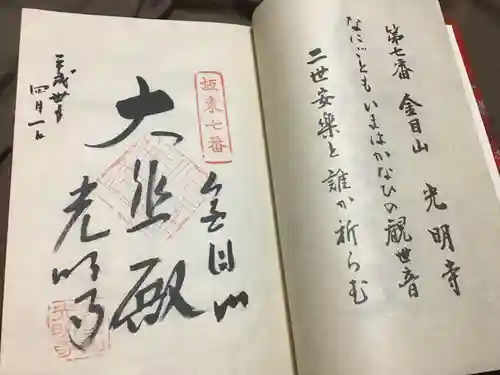 第七番 金目山 光明寺
なにごとも いまはかなひの 観世音
二世安楽と 誰か祈らむ
坂東七番
金目山
大悲殿
光明寺
平成丗年
四月一日